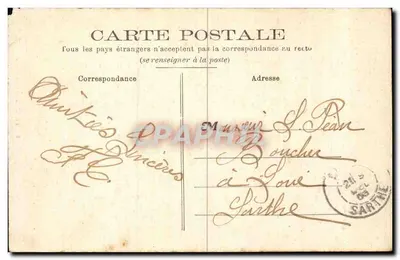 CARTE POSTALE
Tous les pays étrangers n'acceptent pas la correspondance au recto
(se renseigner à la poste)
Correspondance
Adresse
Amitiés
Sincères
Monsieur L Péan
Boucher
à Loué
Sarthe
SARTHE